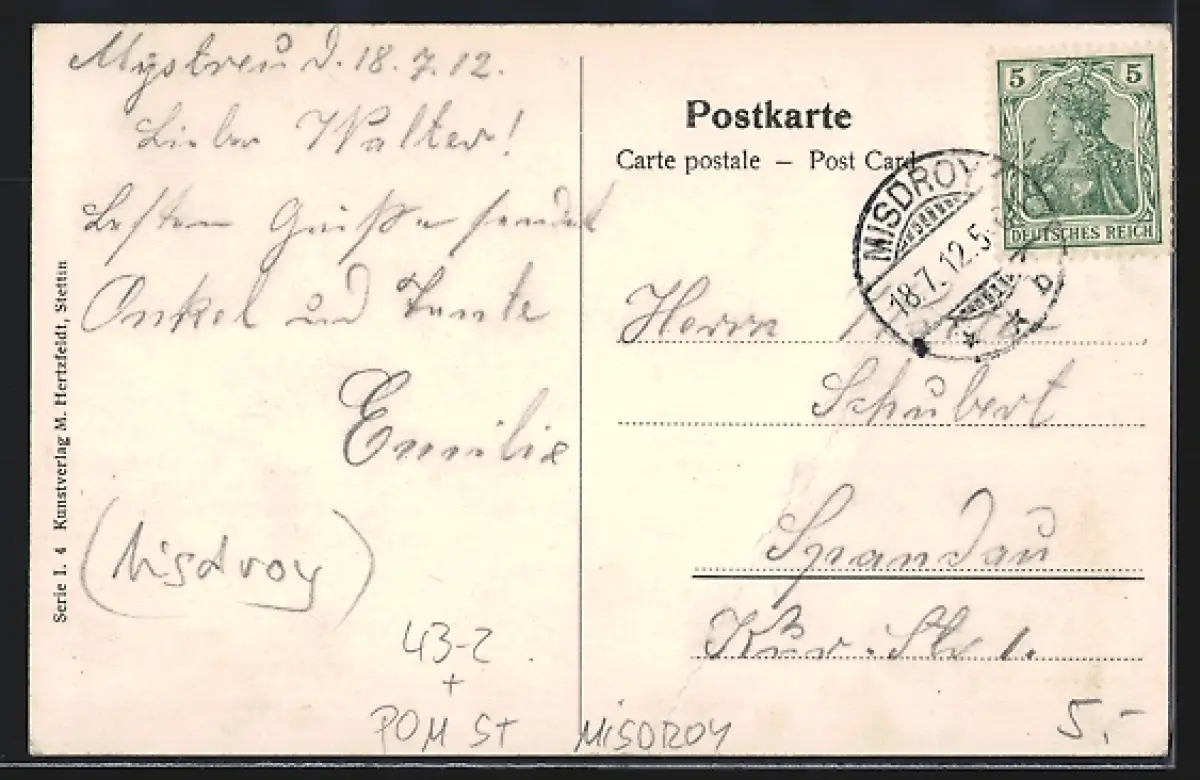 d. 18.7.12.
Lieber Walter!
besten Grüße sendet
Onkel und Tante
Emilie
(Misdroy)
43-2
+
POM ST MISDROY
Serie I. 4 Kunstverlag M. Hertzfeldt, Stettin
Postkarte
Carte postale – Post Card
5 5
DEUTSCHES REICH
MISDROY
18.7.12.5
* * b
Herrn
Schubert
Spandau
Kur. Str 1.
5.-